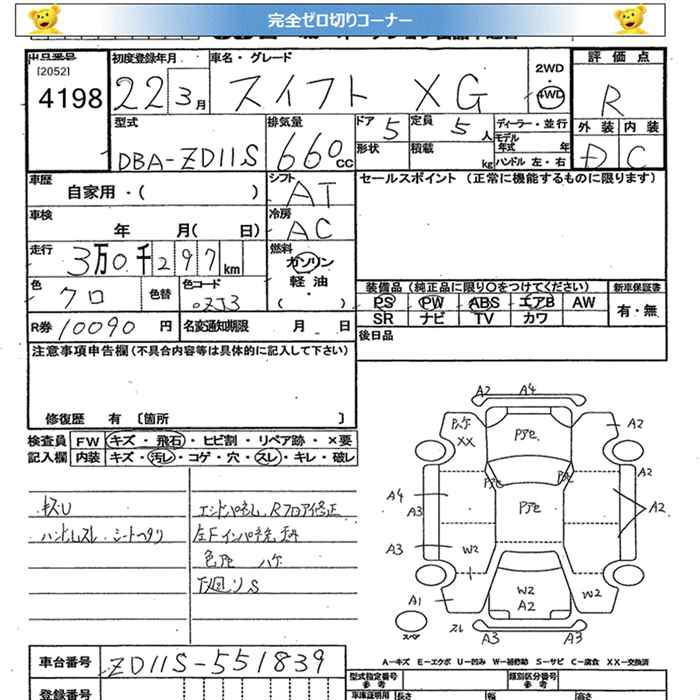 完全ゼロ切りコーナー
出品番号 初度登録年月 車名・グレード 評価点
[2052]
4198 22 3月 スイフト XG 2WD ・ 4WD R
外装 内装
D C
型式 排気量 ドア 定員 ディーラー・並行
DBA-ZD11S 660cc 5 5人 モデル年式 年
形状 積載 kg ハンドル 左・右
車歴 シフト セールスポイント (正常に機能するものに限ります)
自家用・( ) AT
車検 冷房
年 月( 日) AC
走行 燃料
3万0千297km ガソリン
軽油
・( )
色 色替 色コード 装備品(純正品に限り○をつけてください) 新車保証書
クロ ZJ3 PS PW ABS エアB AW 有・無
SR ナビ TV カワ
R券 10090円 名変通知期限 月 日 後日品
注意事項申告欄(不具合内容等は具体的に記入して下さい)
修復歴 有 〔箇所 〕
検査員 FW キズ・飛石・ヒビ割・リペア跡・×要
記入欄 内装 キズ・汚レ・コゲ・穴・スレ・キレ・破レ
キズU エンドパネル、Rフロア修正
ハンドルスレ シートヘタリ 左Fインパネ先
色アセ ハゲ
下廻りS
A2 A4
ハゲ XX Pアセ A2
Pアセ Pアセ A2
A4 Pアセ A2
A3
A3 W2
A1 W2 W2
A2
スペア スレ A3 A3
A-キズ E-エクボ U-凹み W-補修跡 S-サビ C-腐食 XX-交換済
車台番号 ZD11S-551839
型式指定番号 参考 類別区分番号 参考
登録番号 車庫証明用 長さ 幅 高さ